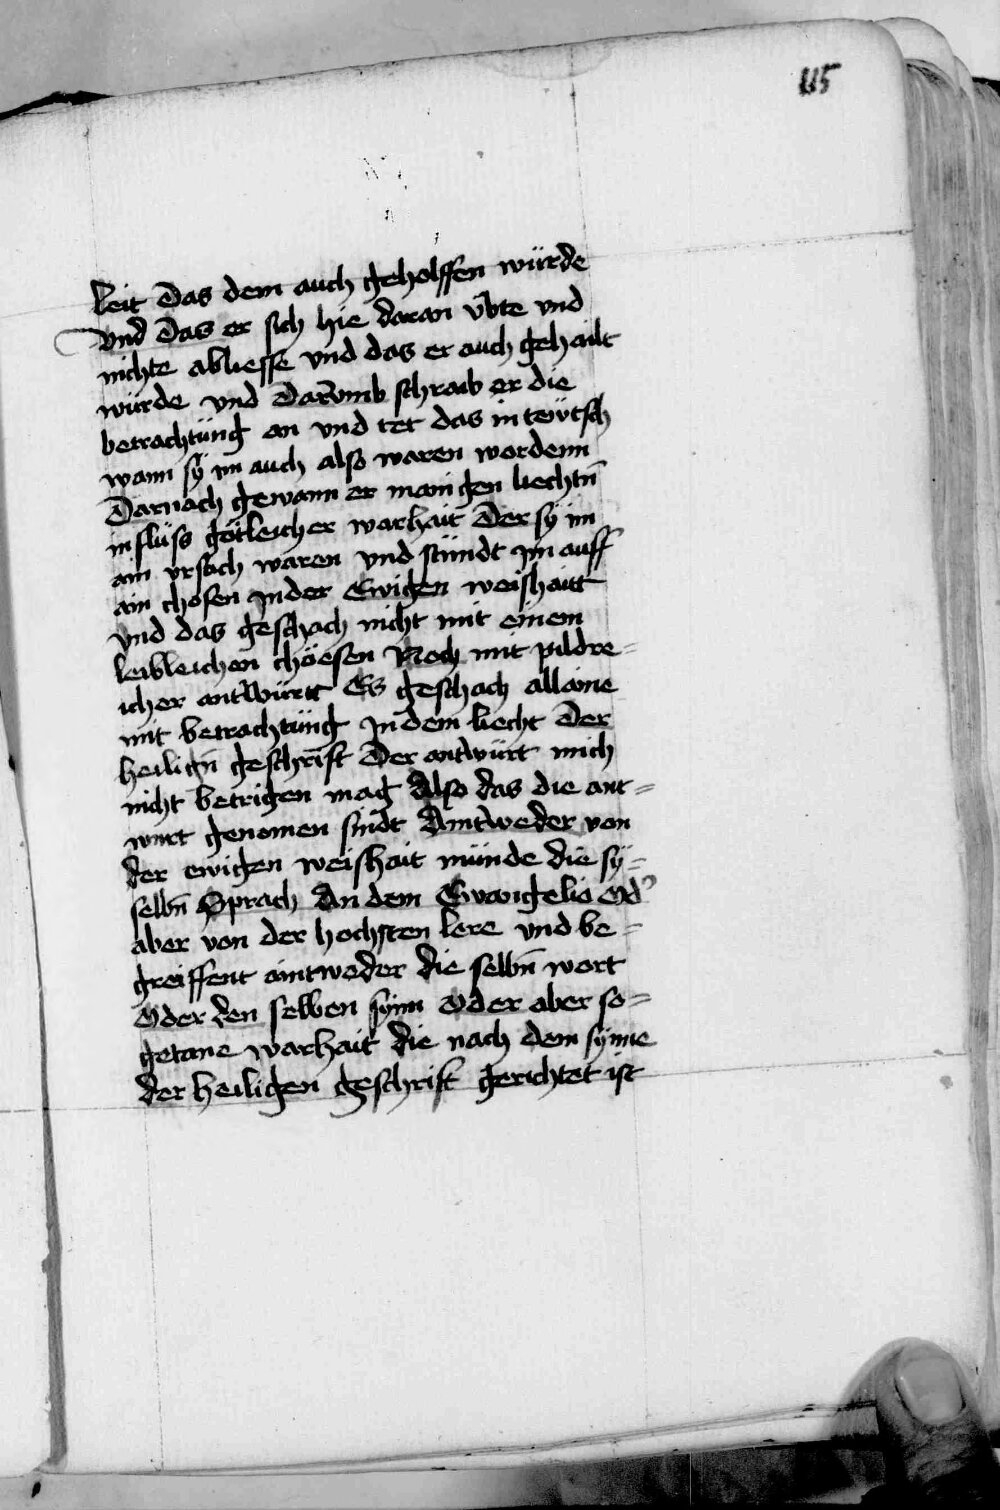 115
leit Das dem auch geholffen würde
vnd Das er sich hie daran v̈bte vnd
nichte abliesse vnd das er auch gehailt
würde vnd Darvmb schraib er die
betrachtüng an vnd tet das in teẅtsch
wann sÿ im auch also waren wordenn
Darnach gewann er manigen liechtn̄
influ̇ss götleicher warhait Der sÿ im
ain vrsach waren vnd stündt Im auff
ain chosen In der Ewigen weishaitt
vnd das geschach nicht mit einem
leibleichen chöesen Noch mit pildre=
icher antwürtt Es geschach allaine
mit betrachtüng In dem liecht Der
heilign̄ geschrift Der antwürt mich
nicht betrigen mag Also das die ant=
wurt genomen sindt Aintweder von
der ewigen weishait münde die sÿ=
selbn̄ Sprach An dem Evangelio Od'
aber von der hochsten lere vnd be=
greiffent aintweder die selbn̄ wort
Oder den selben sÿnn Oder aber so=
getane warhait die nach dem sÿnne
der heiligen geschrift gerichtet ist